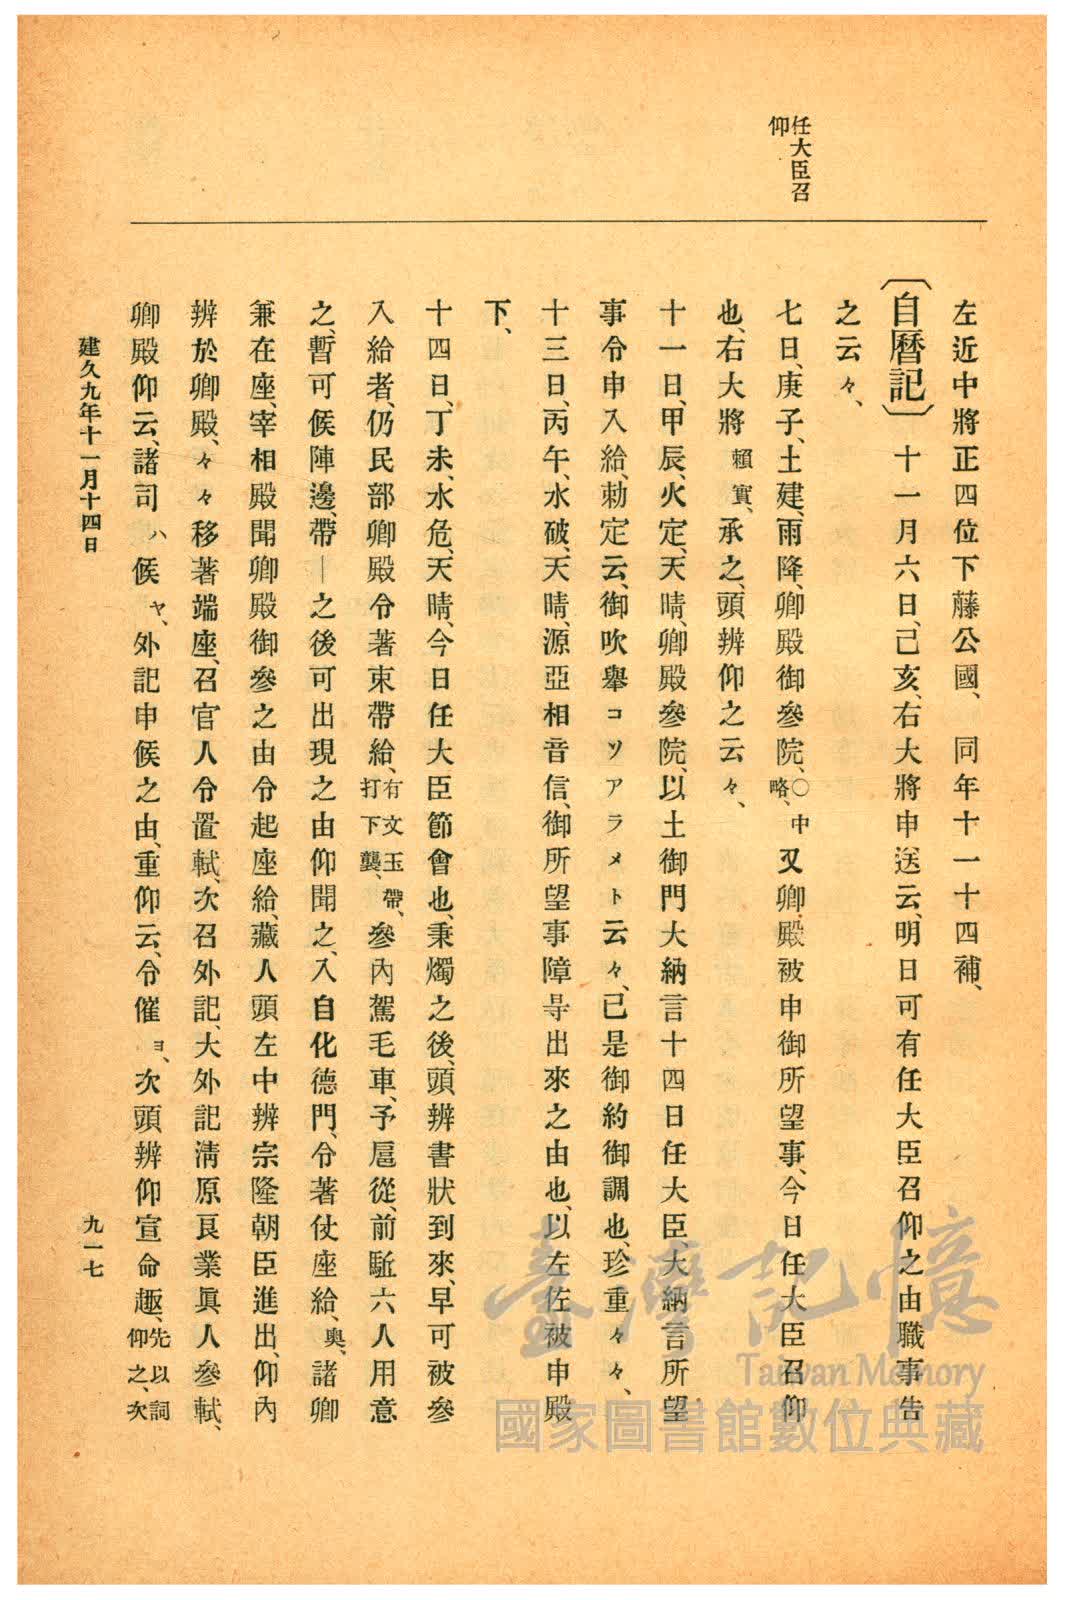 任大臣召
仰
左近中將正四位下藤公國、同年十一十四補、
〔自曆記〕十一月六日、己亥、右大將申送云、明日可有任大臣召仰之由職事告
之云々、
七日、庚子、土建、雨降、卿殿御參院、○中略、又卿殿被申御所望事、今日任大臣召仰
也、右大將賴實、承之、頭辨仰之云々、
十一日、甲辰、火定、天晴、卿殿參院、以土御門大納言十四日任大臣、大納言所望
事令申入給、勅定云、御吹擧コソアラメト云々、已是御約御調也、珍重々々、
十三日、丙午、水破、天晴、源亞相音信、御所望事障㝵出來之由也、以左佐被申殿
下、
十四日、丁未、水危、天晴、今日任大臣節會也、秉燭之後、頭辨書狀到來、早可被參
入給者、仍民部卿殿令著束帶給、有文玉帶、打下襲、參內駕毛車、予扈從、前駈六人用意
之、暫可候陣邊、帶―之後可出現之由仰聞之、入自化德門、令著仗座給、奥、諸卿
兼在座、宰相殿聞卿殿御參之由令起座給、藏人頭左中辨宗隆朝臣進出、仰內
辨於卿殿、々々移著端座、召官人令置軾、次召外記、大外記淸原良業眞人參軾、
卿殿仰云、諸司ハ候ヤ、外記申候之由、重仰云、令催ヨ、次頭辨仰宣命趣、先以詞仰之、次
建久九年十一月十四日
九一七
臺灣記憶
Taiwan Memory
國家圖書館數位典藏